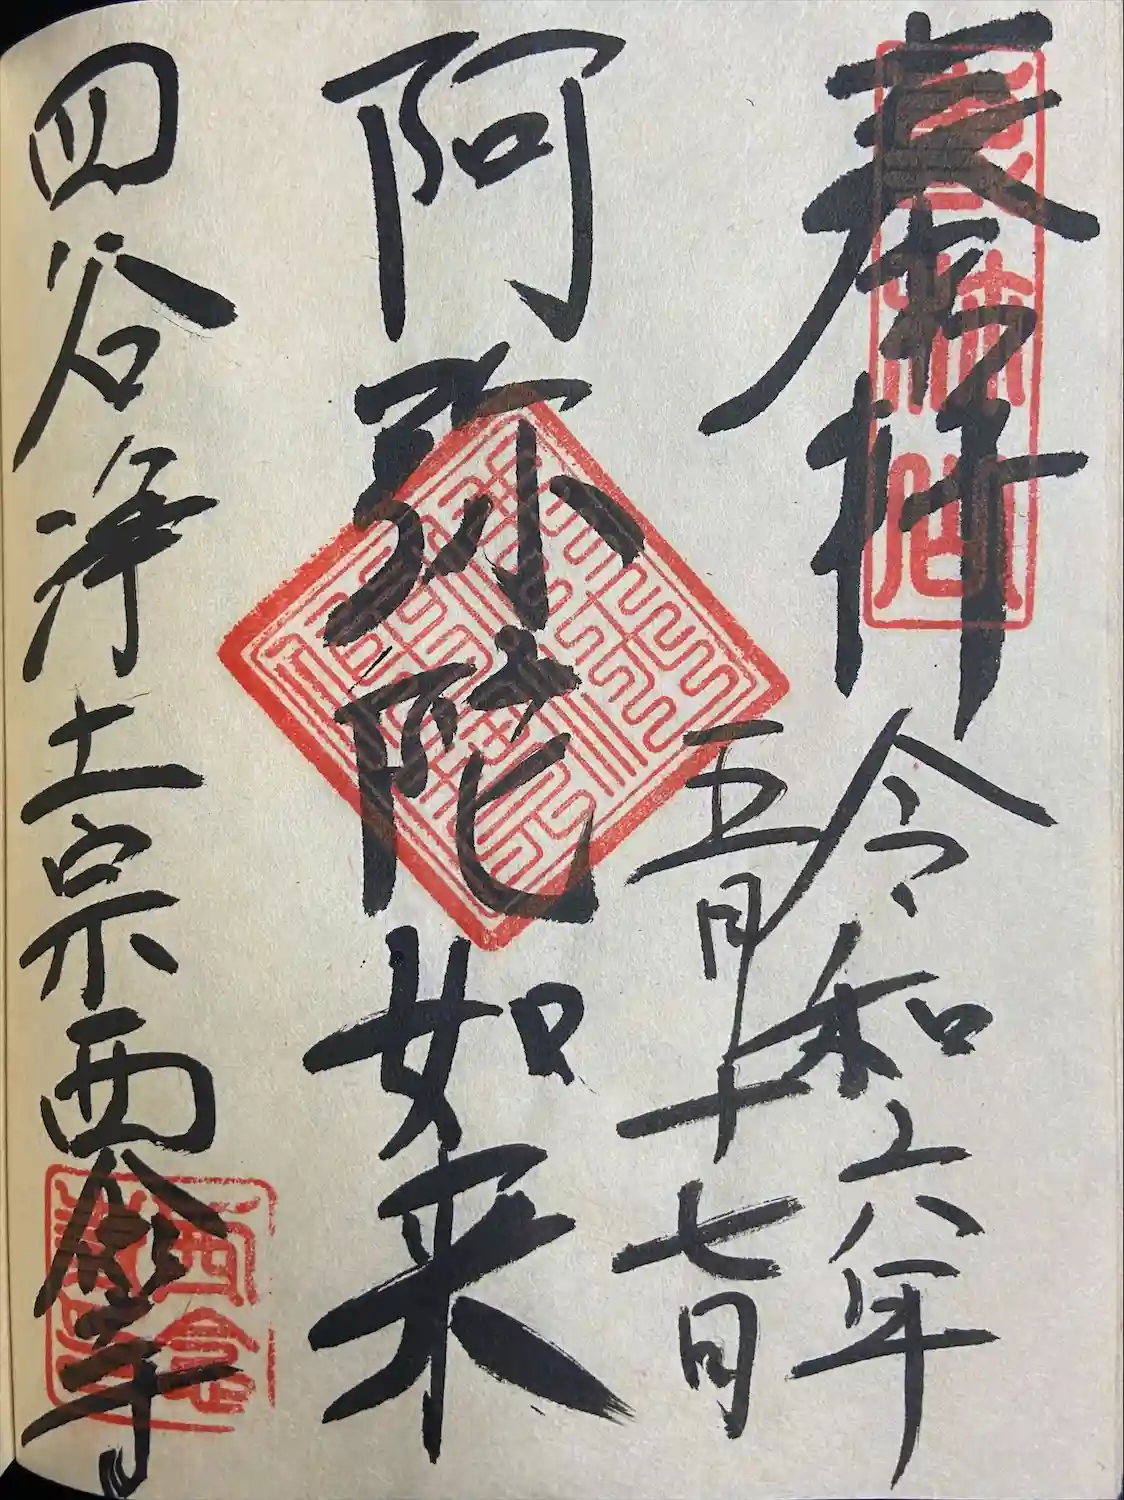 奉拝
令和六年
五月十七日
阿弥陀如来
四谷浄土宗西念寺
西念